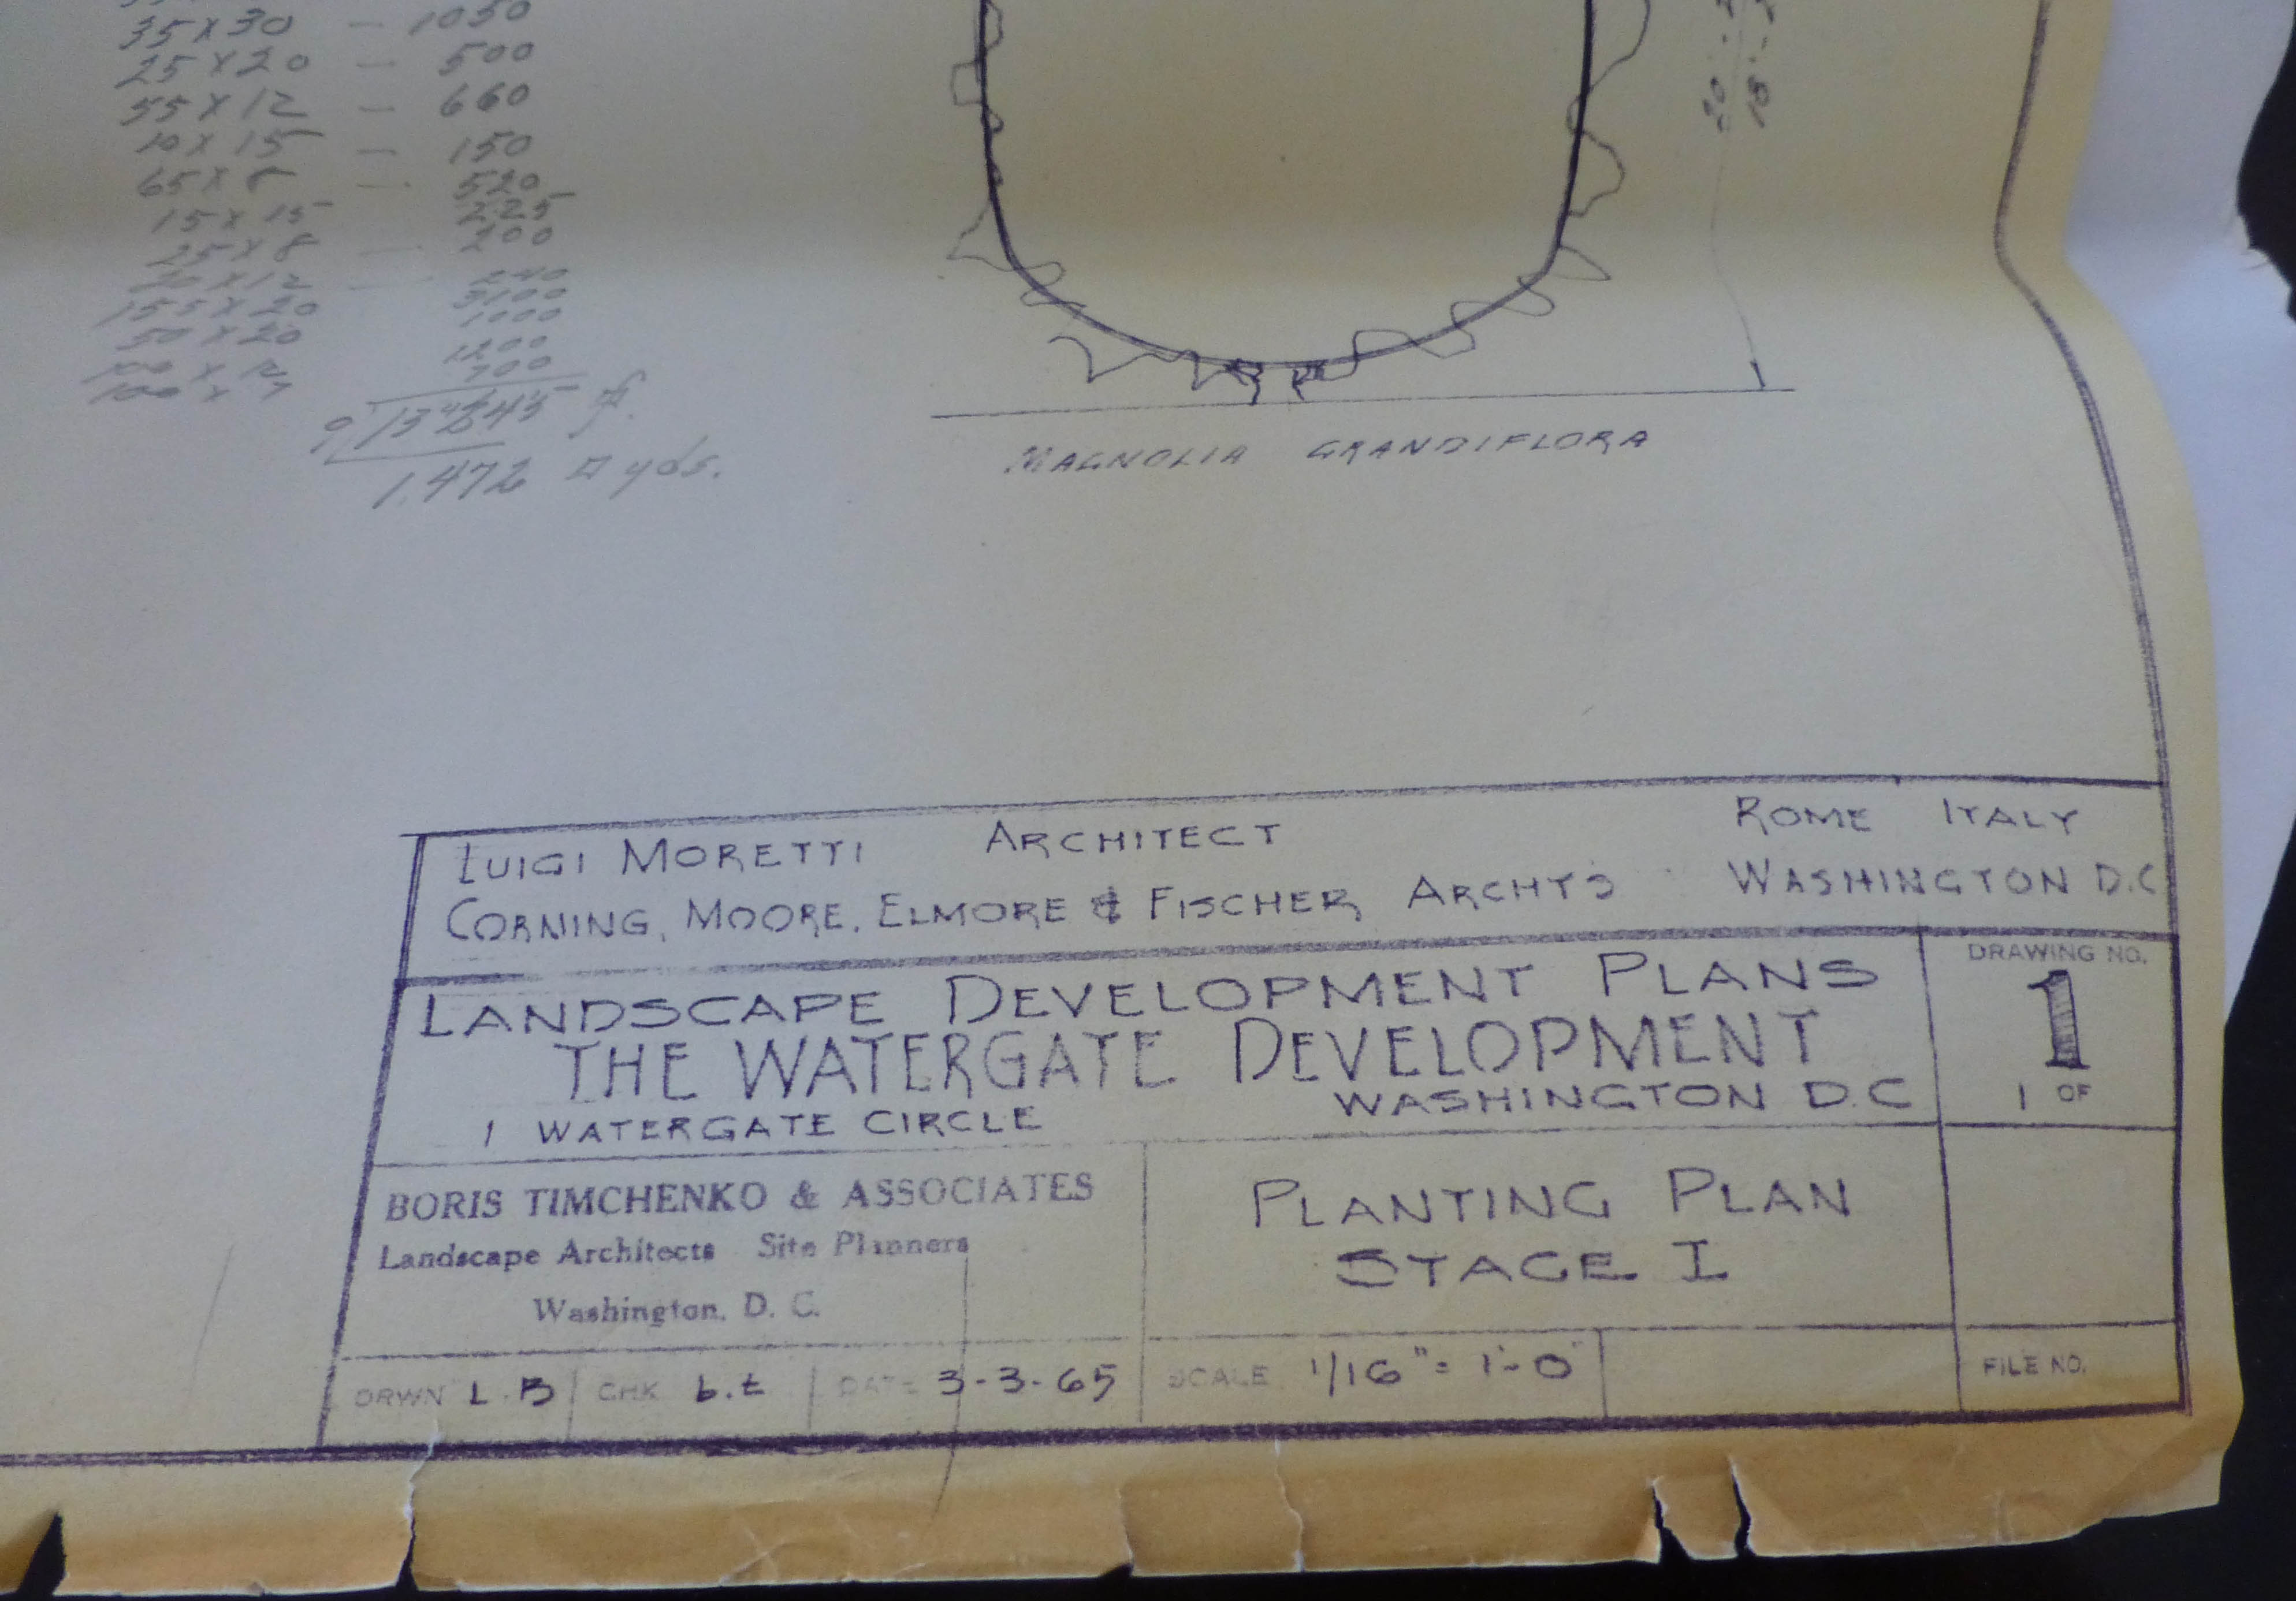 35 X 30 — 1050
25 X 20 — 500
55 X 12 — 660
10 X 15 — 150
65 X 8 — 520
15 X 15 225
25 X 8 — 200
20 X 12 — 240
155 X 20 3100
50 X 20 1000
100 X 12 1200
100 X 7 700
1,472 □ yds.
MAGNOLIA GRANDIFLORA
LUIGI MORETTI ARCHITECT ROME ITALY
CORNING, MOORE, ELMORE & FISCHER, ARCHTS WASHINGTON D.C
LANDSCAPE DEVELOPMENT PLANS
THE WATERGATE DEVELOPMENT
1 WATERGATE CIRCLE WASHINGTON D.C
DRAWING NO.
1
1 OF
BORIS TIMCHENKO & ASSOCIATES
Landscape Architects Site Planners
Washington, D. C.
PLANTING PLAN
STAGE I
DRWN L.B CHK b.t DATE 3-3-65 SCALE 1/16" = 1'-0" FILE NO.